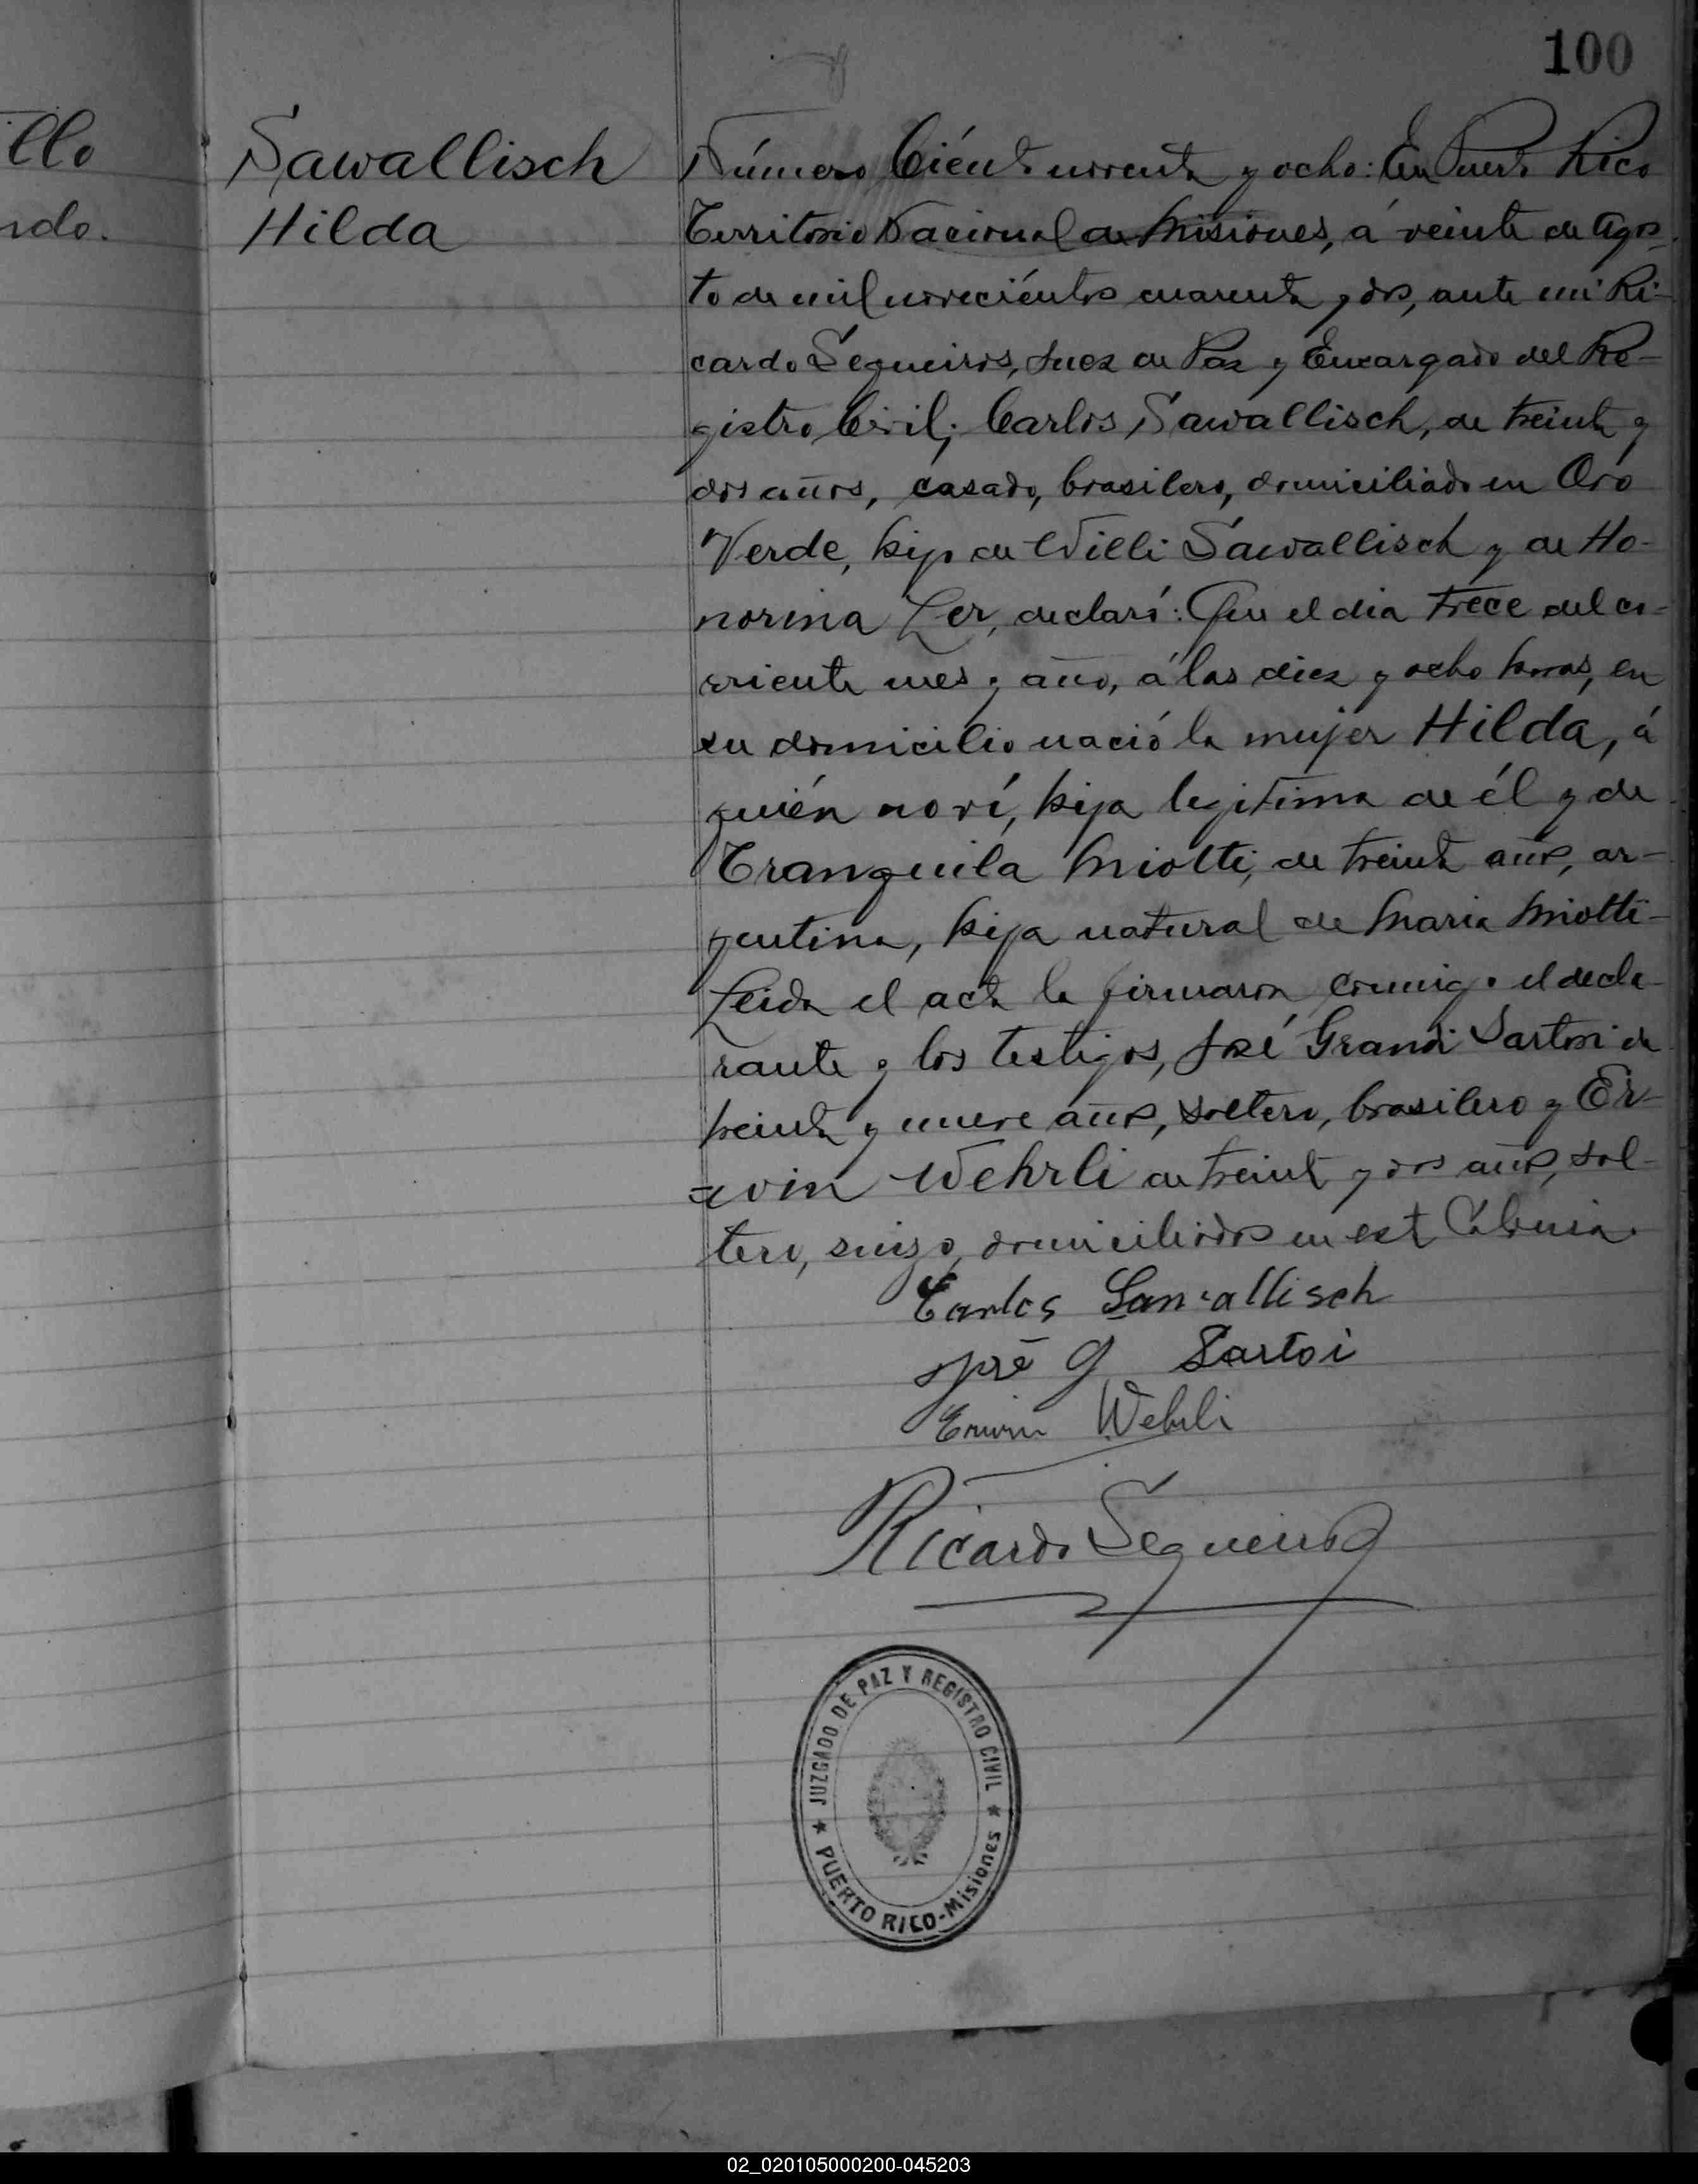 100
llo
ndo.
Sawallisch
Hilda
Número Ciénto noventa y ocho: En Puerto Rico
Territorio Nacional de Misiones, á veinte de Agos-
to de mil noveciéntos cuarenta y dos, ante mi Ri-
cardo Sequeiros, Juez de Paz y Encargado del Re-
gistro Civil; Carlos Sawallisch, de treinta y
dos años, casado, brasilero, domiciliado en Oro
Verde, hijo de Willi Sawallisch y de Ho-
norina Ler, declaró: Que el dia trece del co-
rriente mes y año, á las diez y ocho horas, en
su domicilio nació la mujer Hilda, á
quién no ví, hija legitima de él y de
Tranquila Miotti, de treinta años, ar-
gentina, hija natural de Maria Miotti-
Leida el acta la firmaron conmigo el decla-
rante y los testigos, José Grandi Sartori de
treinta y nueve años, soltero, brasilero y Er-
win Wehrli de treinta y dos años, sol-
tero, suizo, domiciliados en esta Colonia.
Carlos Sawallisch
José G Sartoi
Erwin Wehrli
Ricardo Sequeiros
JUZGADO DE PAZ Y REGISTRO CIVIL
PUERTO RICO-Misiones
02_020105000200-045203